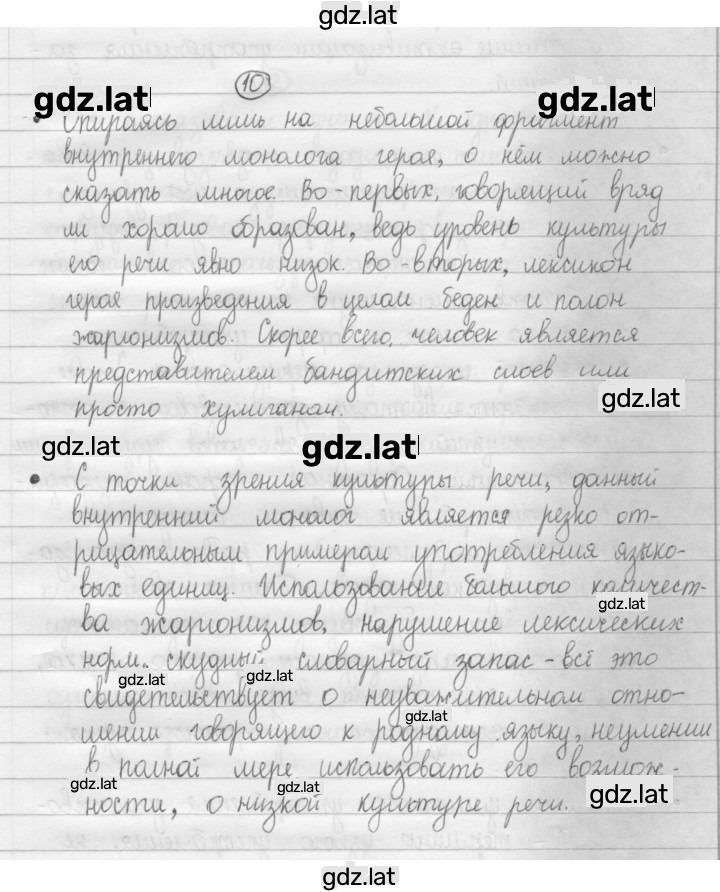 gdz.lat
10
gdz.lat
gdz.lat
• Опираясь лишь на небольшой фрагмент
внутреннего монолога героя, о нём можно
сказать многое. Во-первых, говорящий вряд
ли хорошо образован, ведь уровень культуры
его речи явно низок. Во-вторых, лексикон
героя произведения в целом беден и полон
жаргонизмов. Скорее всего, человек является
представителем бандитских слоев или
gdz.lat
просто хулиганом.
gdz.lat
gdz.lat
• С точки зрения культуры речи, данный
внутренний монолог является резко от-
рицательным примером употребления языко-
вых единиц. Использование большого количест-
gdz.lat
ва жаргонизмов, нарушение лексических
норм, скудный словарный запас - всё это
gdz.lat
gdz.lat
свидетельствует о неуважительном отно-
gdz.lat
шении говорящего к родному языку, неумении
в полной мере использовать его возмож-
gdz.lat
gdz.lat
ности, о низкой культуре речи.
gdz.lat